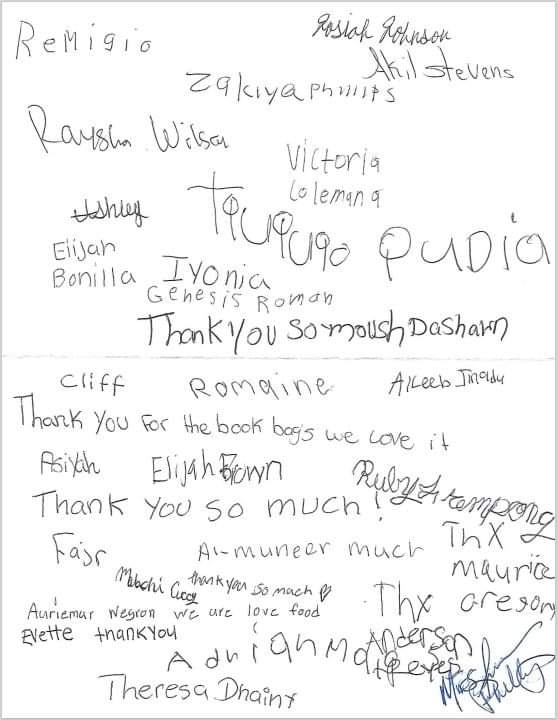 Remigio
Josiah Johnson
Akil Stevens
Zakiya Phillips
Raysha Wilson
Victoria
Colemana
Elijah
Bonilla
Iyonia
Genesis Roman
Thank You So moush Dashawn
Cliff
Romaine
Thank You For the book bags we Love it
Asiyah
Elijah Brown
Ruby
Thank You so much!
Thx
Maurice
Al-muneer much
thank you so mach
Thx Gregory
Auriemar Negron we are love food
Evette thank you
Adrian
Anderson
Theresa Dhainy